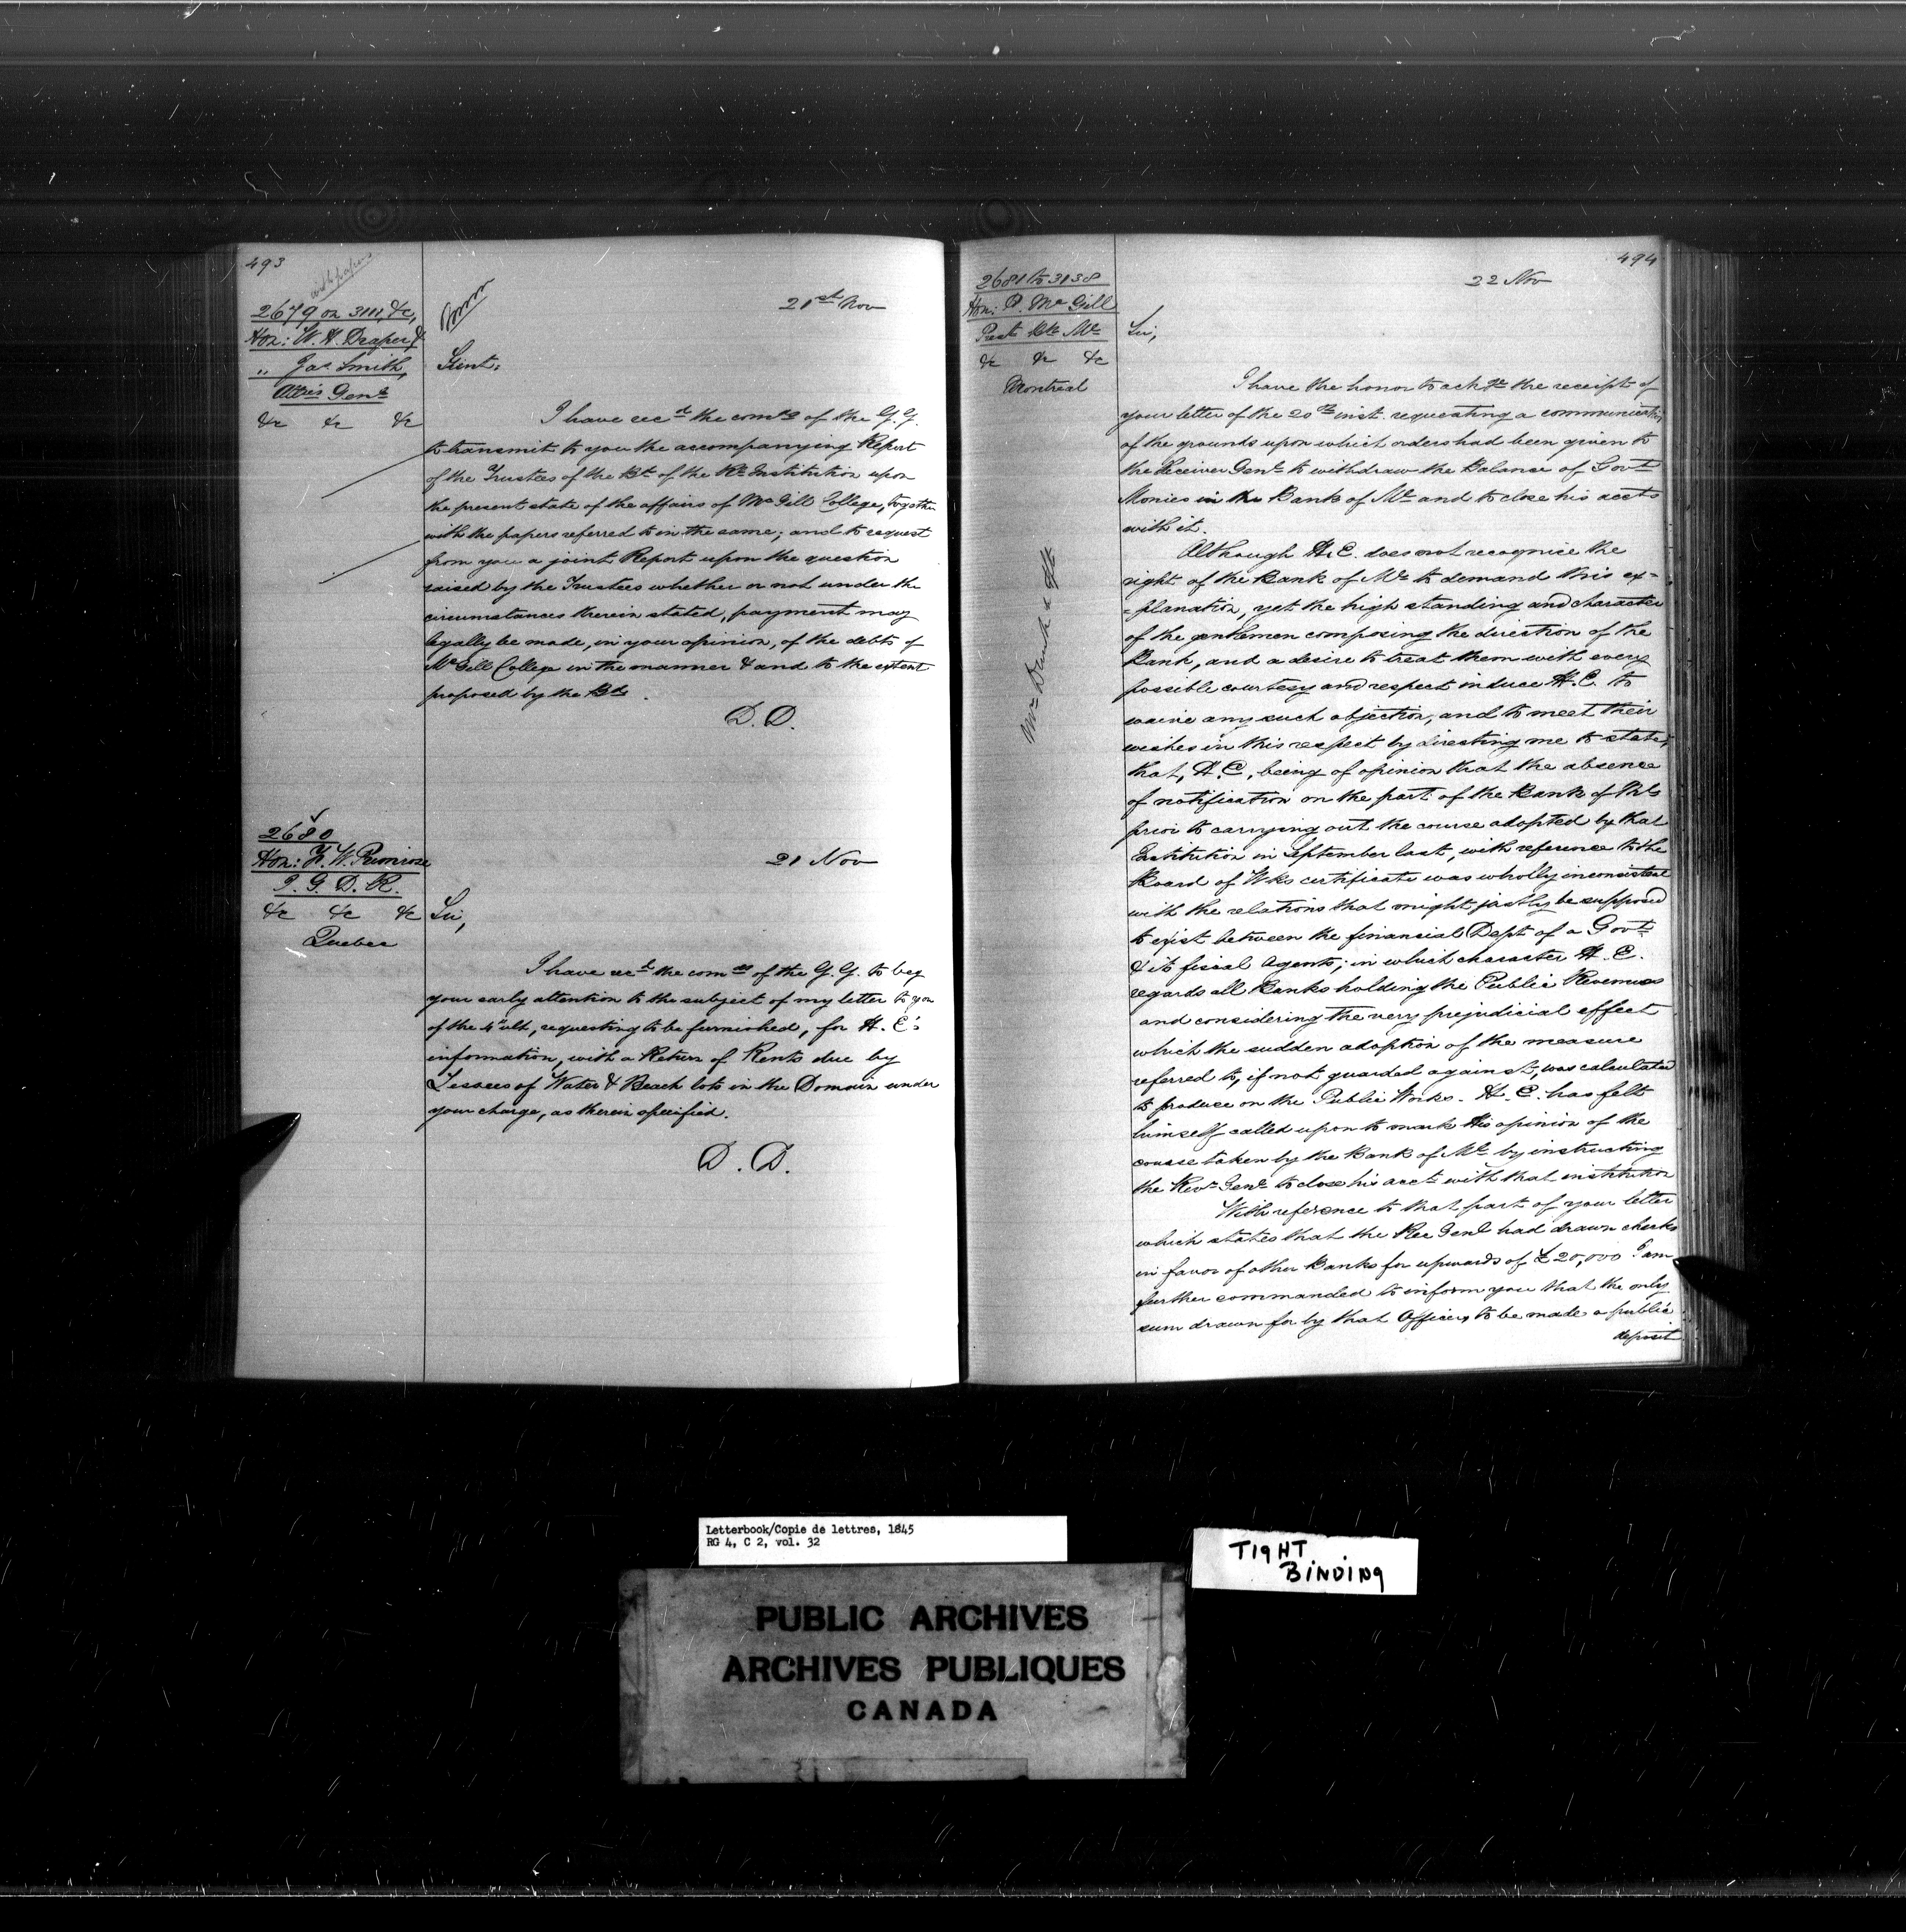 493
with papers
2679 on 3111, &c,
Hon: W. H. Draper &
" Jas Smith,
Attys Genl
&c &c &c
21st Nov
Gent:
I have recd the comds of the G. G.
to transmit to you the accompanying Report
of the Trustees of the Bd of the Rl Institution upon
the present state of the affairs of McGill College, together
with the papers referred to in the same; and to request
from you a joint Report upon the question
raised by the Trustees whether or not under the
circumstances therein stated, payment may
legally be made, in your opinion, of the debts of
McGill College in the manner & and to the extent
proposed by the Bd.
D. D.
2680
Hon: F. W. Primrose
I. G. D. R.
&c &c &c
Quebec
21 Nov
Sir,
I have recd the comds of the G. G. to beg
your early attention to the subject of my letter to you
of the 4" ult, requesting to be furnished, for H. E's
information, with a Return of Rents due by
Lessees of Water & Beach lots in the Domain under
your charge, as therein specified.
D. D.
494
2681 to 3138
Hon: P. McGill
Prest Bk Ml
&c &c &c
Montreal
22 Nov
Sir,
I have the honor to ackge the receipt of
your letter of the 20th inst. requesting a communication
of the grounds upon which orders had been given to
the Receiver Genl to withdraw the Balance of Govt
Monies in the Bank of Ml and to close his accts
with it.
Although H. E. does not recognize the
right of the Bank of Ml to demand this ex=
=planation, yet the high standing and character
of the gentlemen composing the direction of the
Bank, and a desire to treat them with every
possible courtesy and respect induce H. E. to
waive any such objection, and to meet their
wishes in this respect by directing me to state,
that, H. E, being of opinion that the absence
of notification on the part of the Bank of Ml
prior to carrying out the course adopted by that
Institution in September last, with reference to the
Board of Wks certificate was wholly inconsistent
with the relations that might justly be supposed
to exist between the financial Dept of a Govt
& its fiscal Agents; in which character H. E.
regards all Banks holding the Public Revenues
and considering the very prejudicial effect
which the sudden adoption of the measure
referred to, if not guarded against, was calculated
to produce on the Public Works. H. E. has felt
himself called upon to mark his opinion of the
course taken by the Bank of Ml by instructing
the Recr Genl to close his acct with that institution
With reference to that part of your letter
which states that the Rec Genl had drawn checks
in favor of other Banks for upwards of £20,000 I am
further commanded to inform you that the only
sum drawn for by that Officer, to be made a public
deposit
Letterbook/Copie de lettres, 1845
RG 4, C 2, vol. 32
TIGHT
BINDING
PUBLIC ARCHIVES
ARCHIVES PUBLIQUES
CANADA